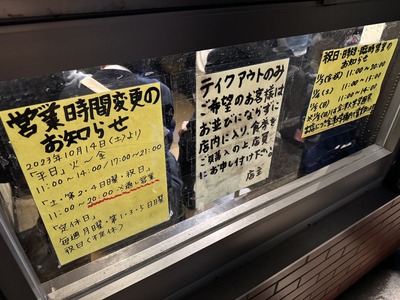 営業時間変更の
お知らせ
2023年10月14日(土)より
「平日」火〜金
11:00〜14:00/17:00〜21:00
「土・第2・4日曜・祝日」
11:00〜20:00※通し営業
「定休日」
毎週月曜・第1・3・5日曜
祝日(不定休)
テイクアウトのみ
ご希望のお客様は
お並びにならずに
店内に入り、食券を
ご購入の上、店員
にお申し付け下さい。
店主
祝日・時短・臨時営業の
お知らせ
11:00〜20:00
11:00〜15:00